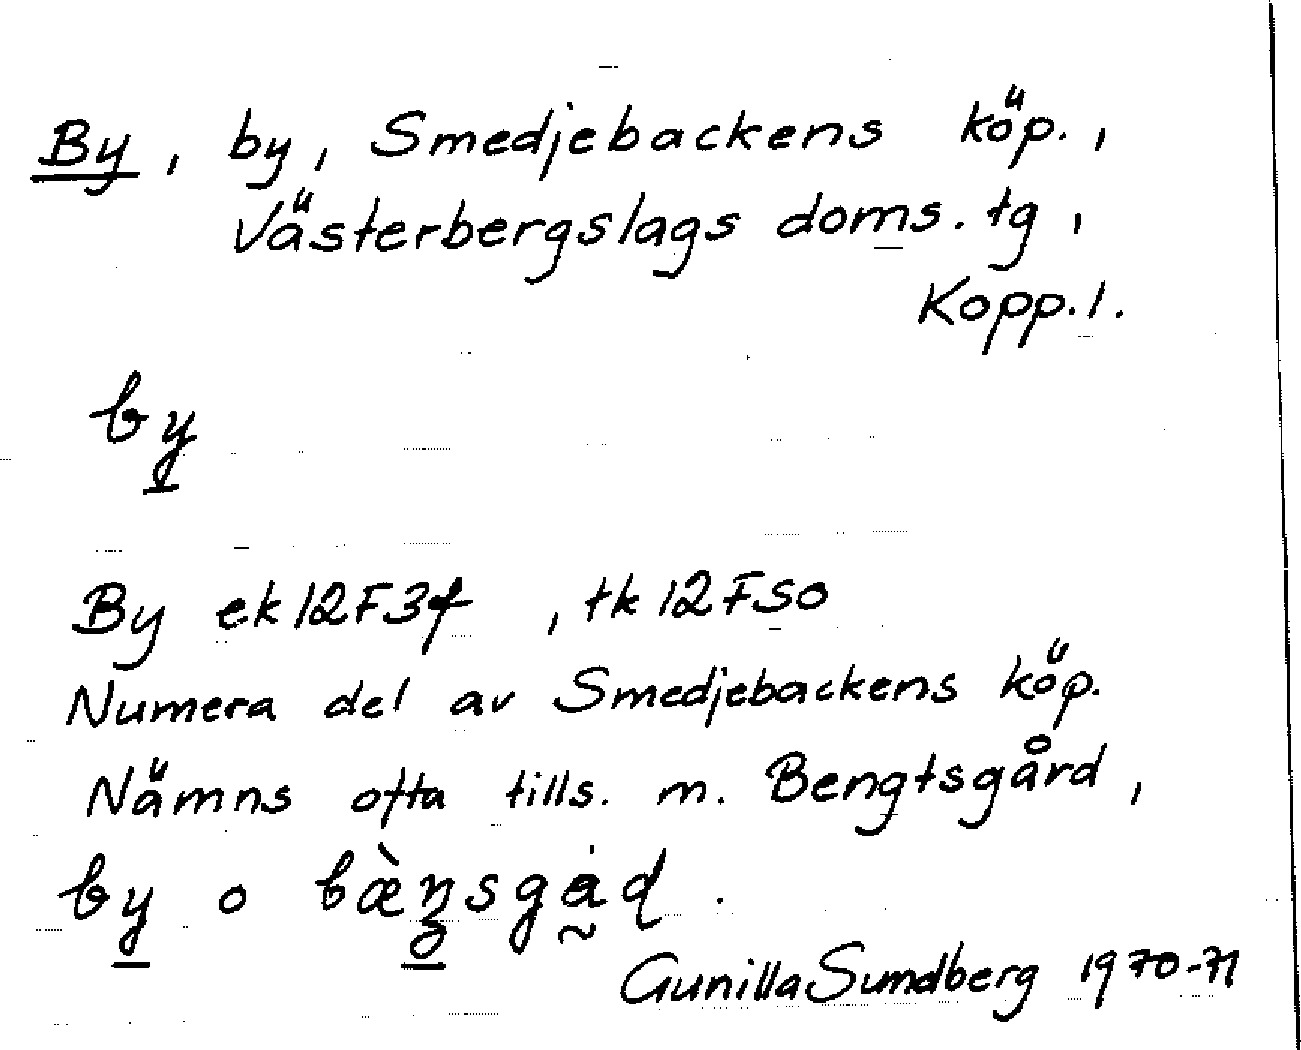 By, by, Smedjebackens köp.,
Västerbergslags doms. tg,
Kopp. l.
by
By ek 12F3f, tk 12FSO
Numera del av Smedjebackens köp.
Nämns ofta tills. m. Bengtsgård,
by o bæ̀ŋsgạ̊ɖ.
Gunilla Sundberg 1970-71